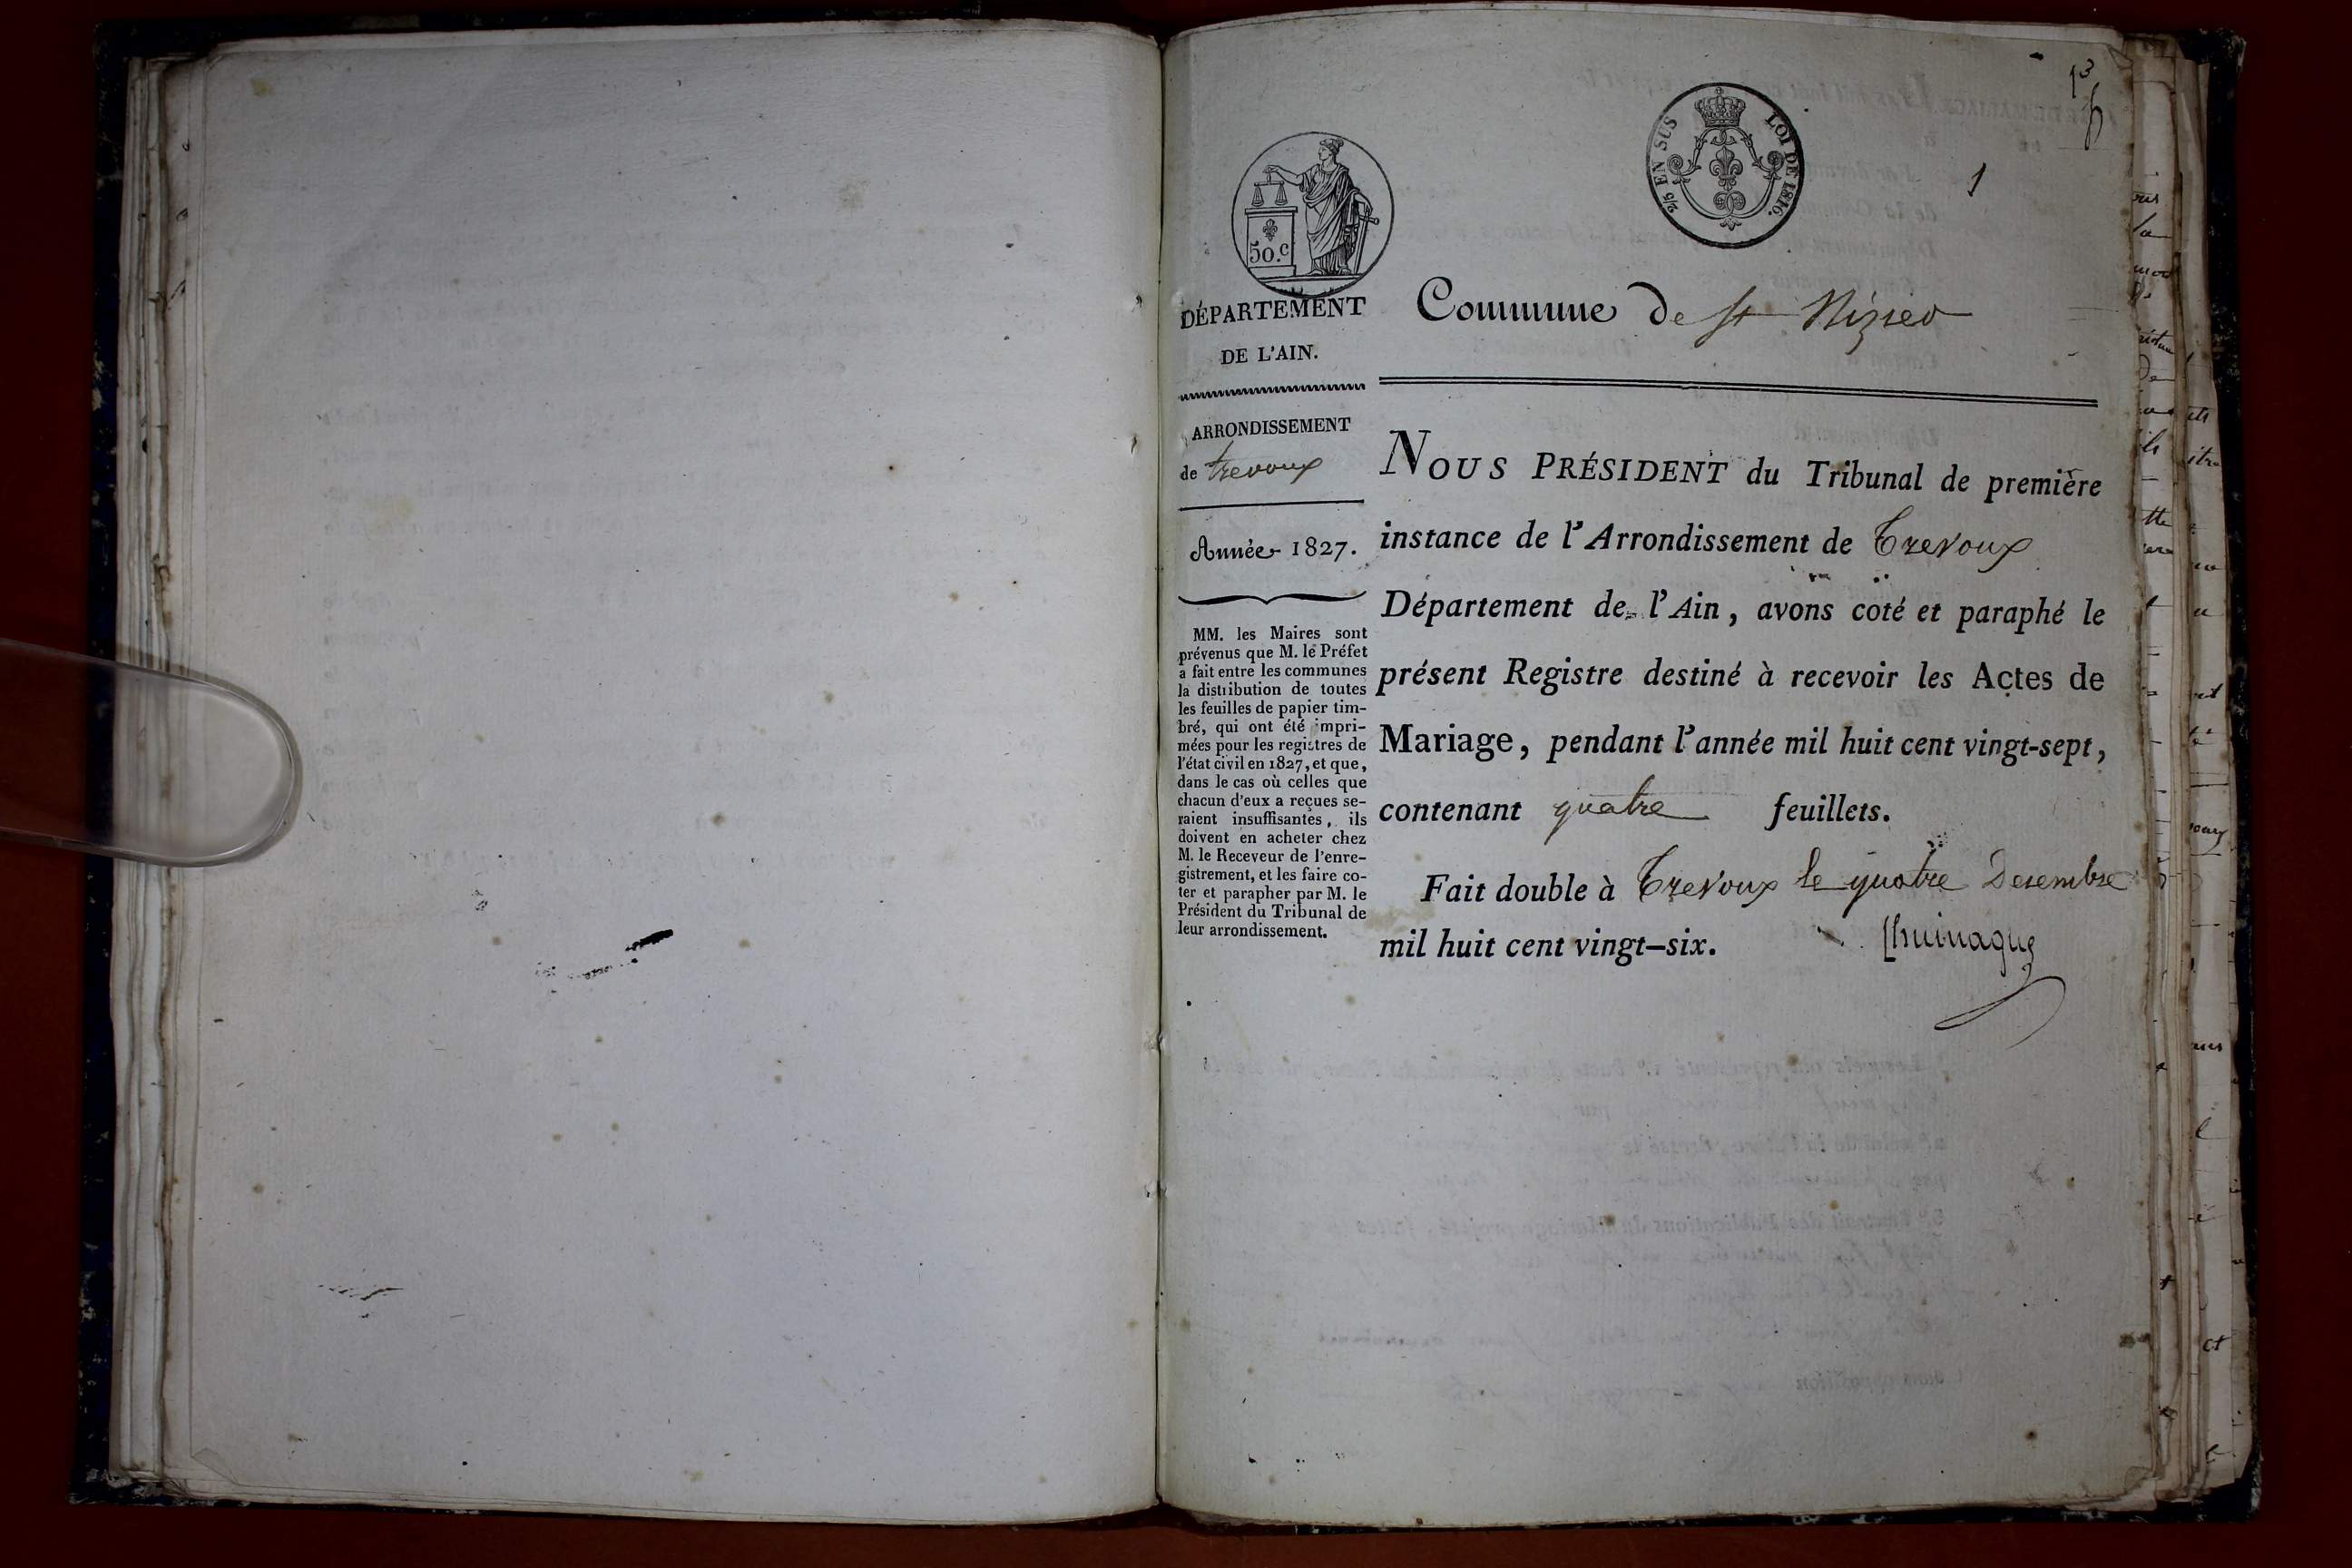 13
1
2/5 EN SUS LOI DE 1816.
50.c
DÉPARTEMENT
DE L'AIN.
Commune de st Nizier
ARRONDISSEMENT
de trevoux
Année 1827.
MM. les Maires sont
prévenus que M. le Préfet
a fait entre les communes
la distribution de toutes
les feuilles de papier tim-
bré, qui ont été impri-
mées pour les registres de
l'état civil en 1827, et que,
dans le cas où celles que
chacun d'eux a reçues se-
raient insuffisantes, ils
doivent en acheter chez
M. le Receveur de l'enre-
gistrement, et les faire co-
ter et parapher par M. le
Président du Tribunal de
leur arrondissement.
NOUS PRÉSIDENT du Tribunal de première
instance de l'Arrondissement de Trevoux
Département de l'Ain, avons coté et paraphé le
présent Registre destiné à recevoir les Actes de
Mariage, pendant l'année mil huit cent vingt-sept,
contenant quatre feuillets.
Fait double à Trevoux le quatre Decembre
mil huit cent vingt-six.